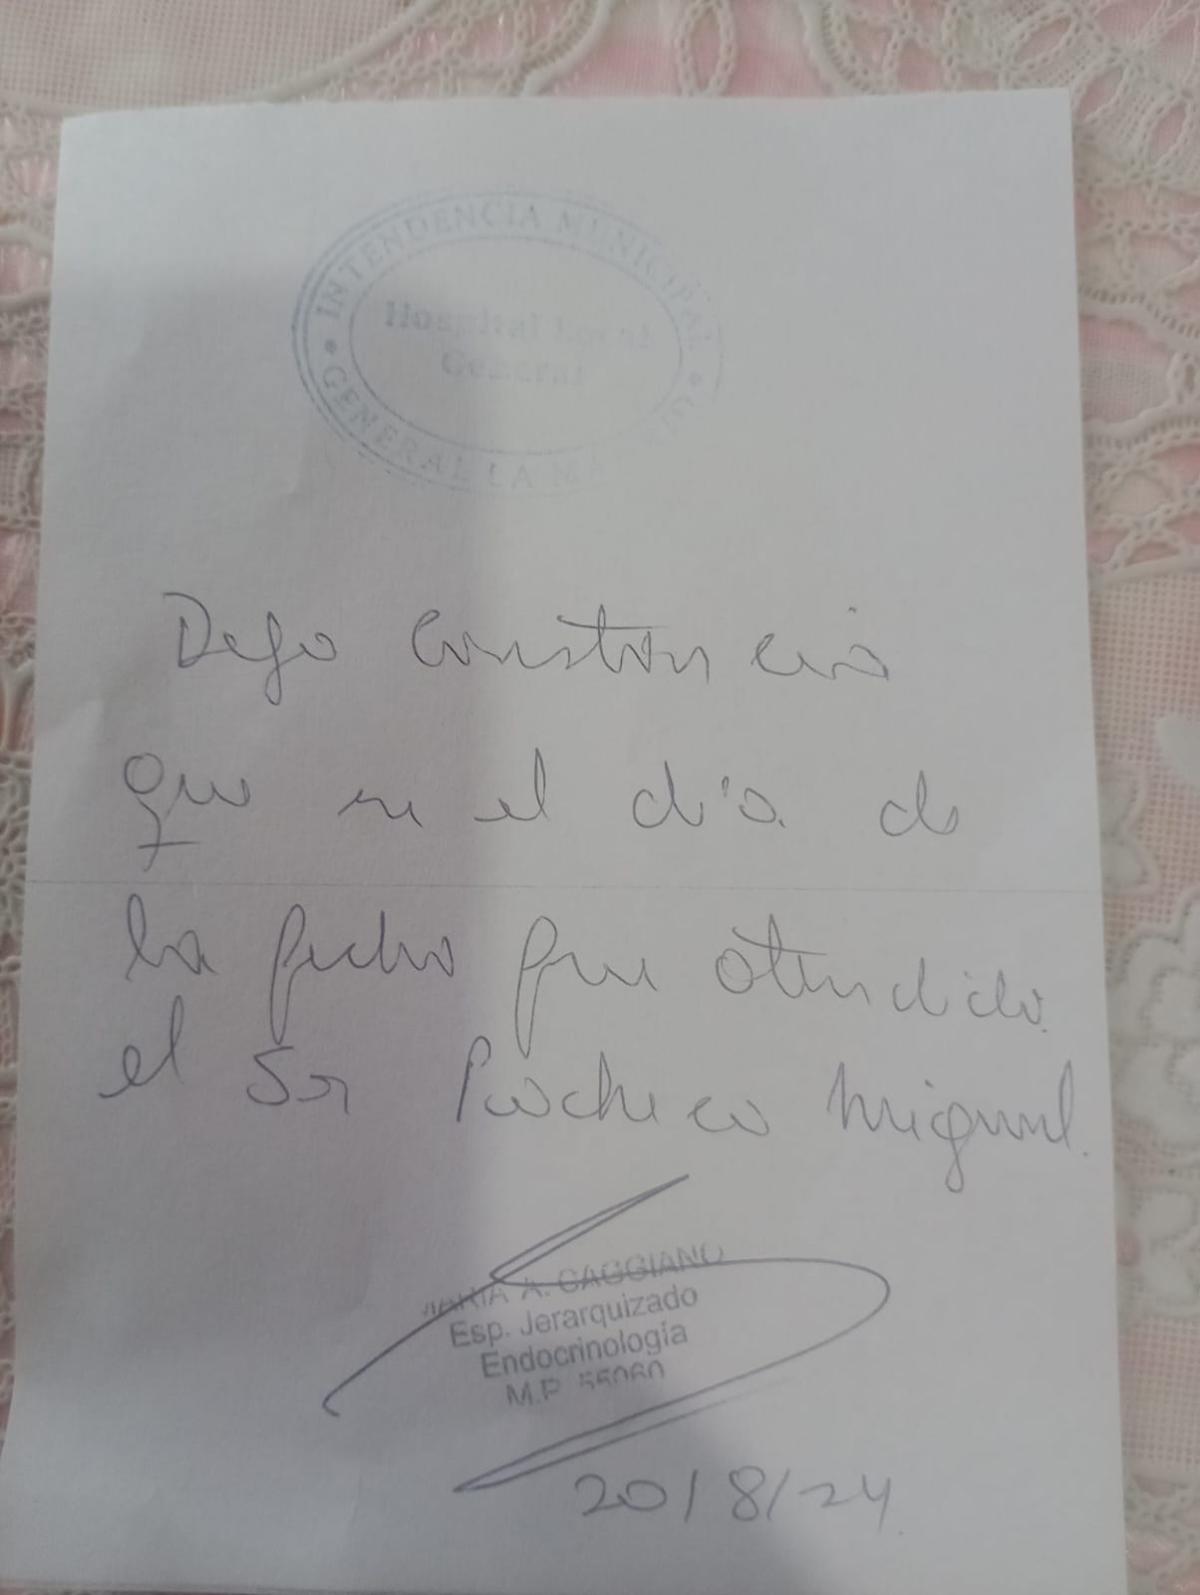 INTENDENCIA MUNICIPAL
Hospital Local
General
GENERAL LA MA
Dejo constancia
que en el día de
la fecha fue atendido
el Sr Pacheco Miguel.
MARIA A. CAGGIANO
Esp. Jerarquizado
Endocrinología
M.P. 55060
20/8/24